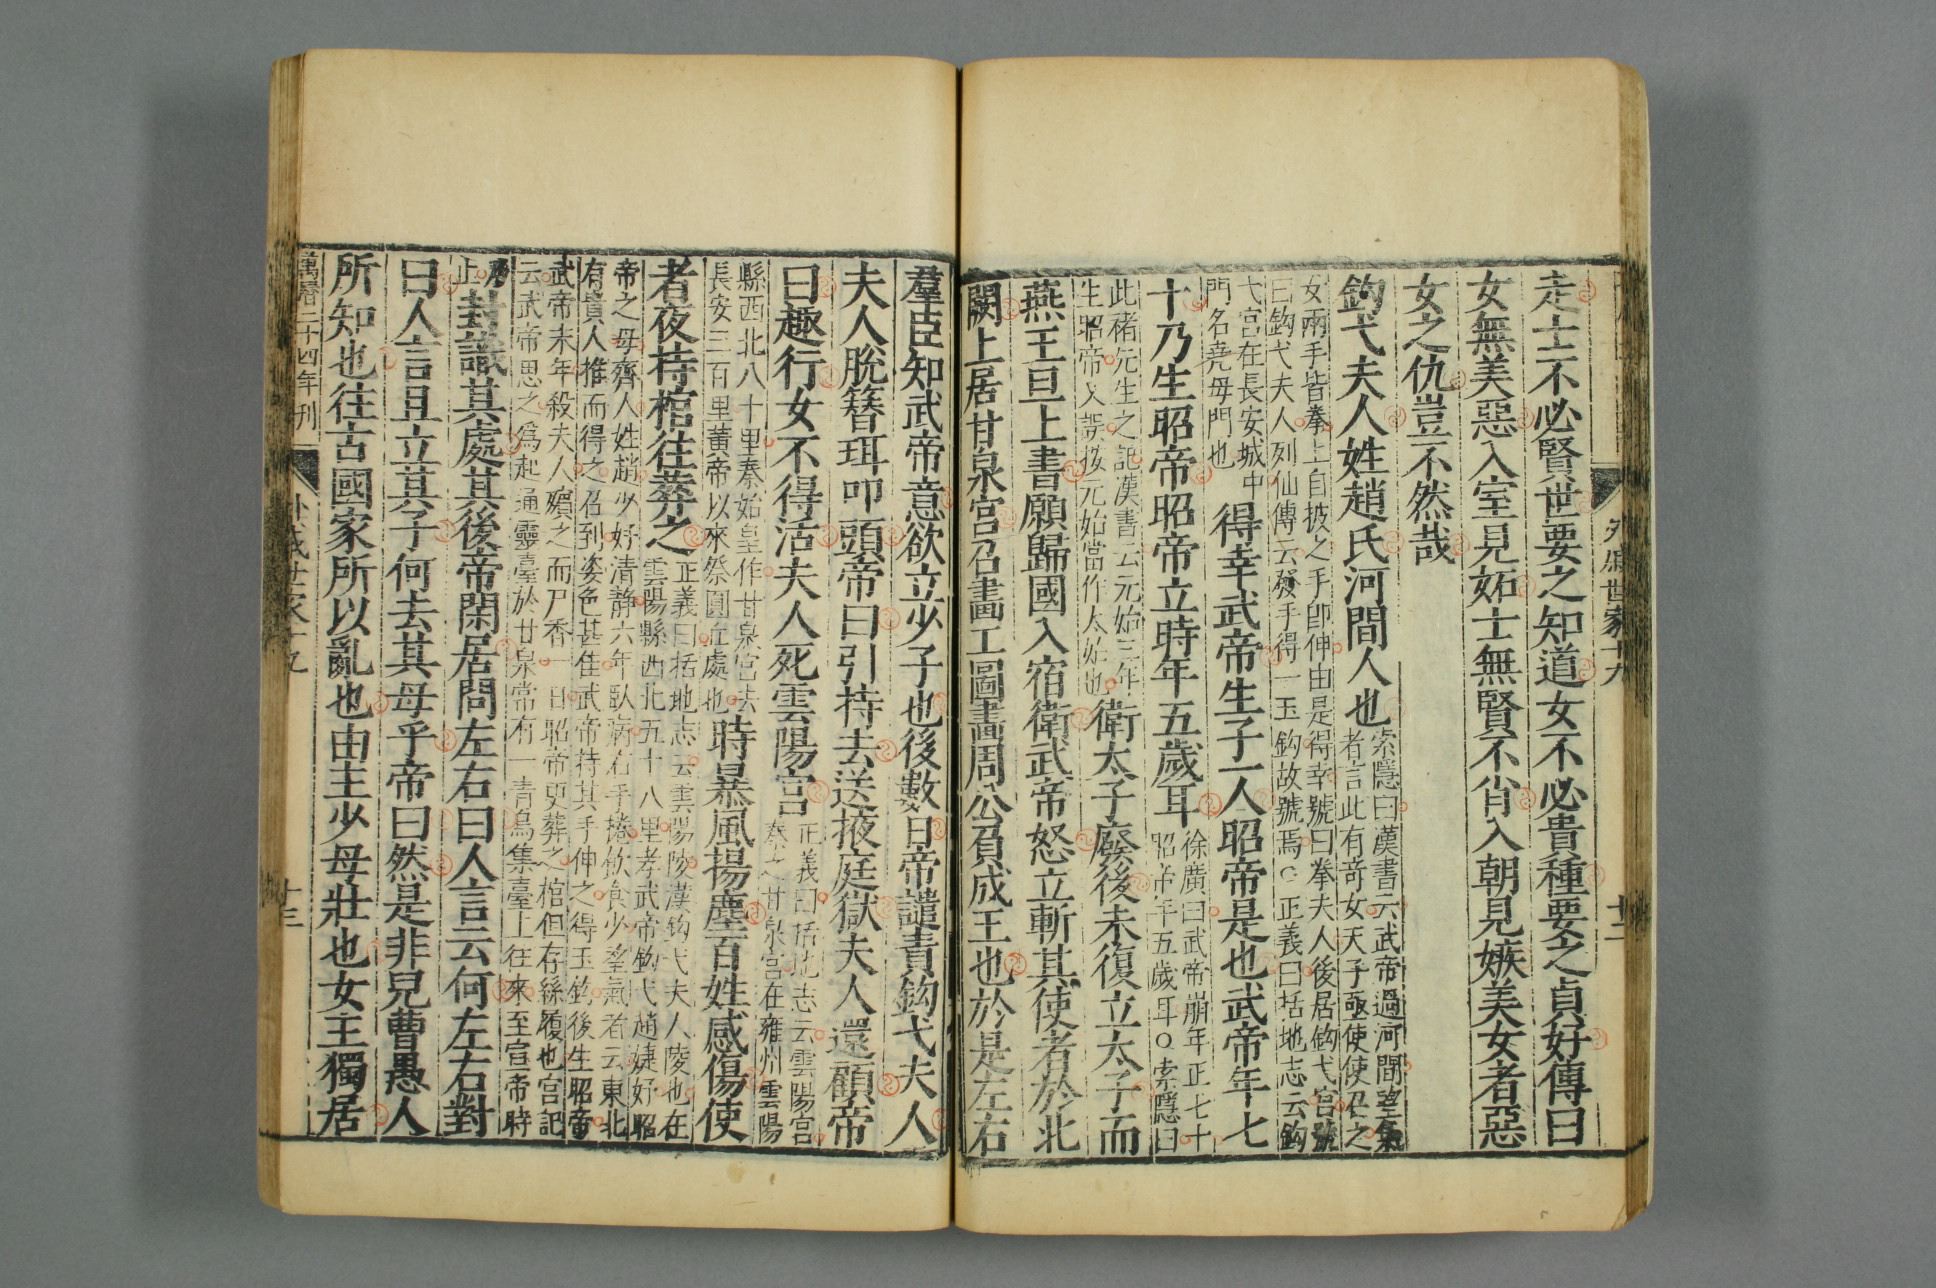 外戚世家十九 十二
走士不必賢世要之知道女不必貴種要之貞好傳曰
女無美惡入室見妬士無賢不肖入朝見嫉美女者惡
女之仇豈不然哉
鈎弋夫人姓趙氏河間人也
索隱曰漢書云武帝過河間望氣
者言此有奇女天子亟使使召之
女兩手皆拳上自披之手卽伸由是得幸號曰拳夫人後居鈎弋宮號
曰鈎弋夫人列仙傳云發手得一玉鈎故號焉○正義曰括地志云鈎
弋宮在長安城中
門名堯母門也
得幸武帝生子一人昭帝是也武帝年七
十乃生昭帝昭帝立時年五歲耳
徐廣曰武帝崩年正七十
昭帝年五歲耳○索隱曰
此褚先生之記漢書云元始三年
生昭帝又誤按元始當作太始也
衛太子廢後未復立太子而
燕王旦上書願歸國入宿衛武帝怒立斬其使者於北
闕上居甘泉宮召畫工圖畫周公負成王也於是左右
羣臣知武帝意欲立少子也後數日帝譴責鈎弋夫人
夫人脫簪珥叩頭帝曰引持去送掖庭獄夫人還顧帝
曰趣行女不得活夫人死雲陽宮
正義曰括地志云雲陽宮
秦之甘泉宮在雍州雲陽
縣西北八十里秦始皇作甘泉宮去
長安三百里黃帝以來祭圓丘處也
時暴風揚塵百姓感傷使
者夜持棺往葬之
正義曰括地志云雲陽陵漢鈎弋夫人陵也在
雲陽縣西北五十八里孝武帝鈎弋趙婕妤昭
帝之母齊人姓趙少好清靜六年臥病右手捲飲食少望氣者云東北
有貴人推而得之召到姿色甚佳武帝持其手伸之得玉鈎後生昭帝
武帝末年殺夫人殯之而尸香一日昭帝更葬之棺但存絲履也宮記
云武帝思之爲起通靈臺於甘泉常有一青鳥集臺上往來至宣帝時
乃
止
封識其處其後帝閑居問左右曰人言云何左右對
曰人言且立其子何去其母乎帝曰然是非兒曹愚人
所知也往古國家所以亂也由主少母壯也女主獨居
萬曆二十四年刊 外戚世家十九 十三